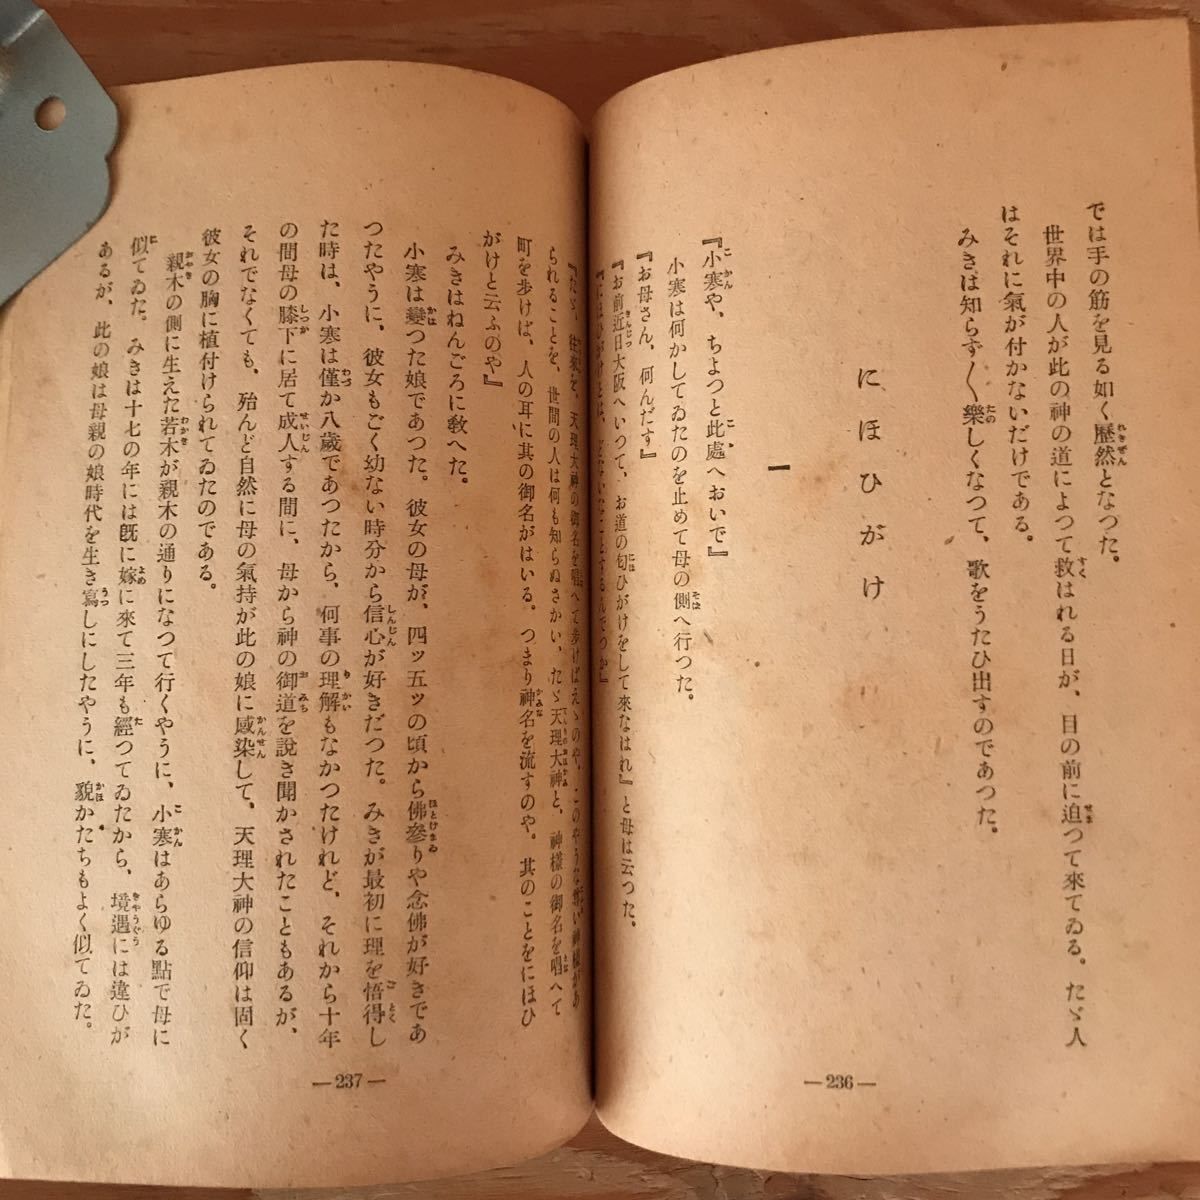 では手の筋を見る如く歴然となつた。
世界中の人が此の神の道によつて救はれる日が、目の前に迫つて來てゐる。たゞ人
はそれに氣が付かないだけである。
みきは知らず〱樂しくなつて、歌をうたひ出すのであつた。
にほひがけ
一
『小寒や、ちよつと此處へおいで』
小寒は何かしてゐたのを止めて母の側へ行つた。
『お母さん、何んだす』
『お前近日大阪へいつて、お道の匂ひがけをして來なはれ』と母は云つた。
『にほひがけとは、どないなことするんでつか』
―236―
『たゞ、往來を、天理大神の御名を唱へて歩けばえゝのや、このやうな尊い神樣があ
られることを、世間の人は何も知らぬさかい、たゞ天理大神と、神樣の御名を唱へて
町を歩けば、人の耳に其の御名がはいる。つまり神名を流すのや。其のことをにほひ
がけと云ふのや』
みきはねんごろに敎へた。
小寒は變つた娘であつた。彼女の母が、四ッ五ッの頃から佛參りや念佛が好きであ
つたやうに、彼女もごく幼ない時分から信心が好きだつた。みきが最初に理を悟得し
た時は、小寒は僅か八歲であつたから、何事の理解もなかつたけれど、それから十年
の間母の膝下に居て成人する間に、母から神の御道を說き聞かされたこともあるが、
それでなくても、殆んど自然に母の氣持が此の娘に感染して、天理大神の信仰は固く
彼女の胸に植付けられてゐたのである。
親木の側に生えた若木が親木の通りになつて行くやうに、小寒はあらゆる點で母に
似てゐた。みきは十七の年には旣に嫁に來て三年も經つてゐたから、境遇には違ひが
あるが、此の娘は母親の娘時代を生き寫しにしたやうに、貌かたちもよく似てゐた。
―237―